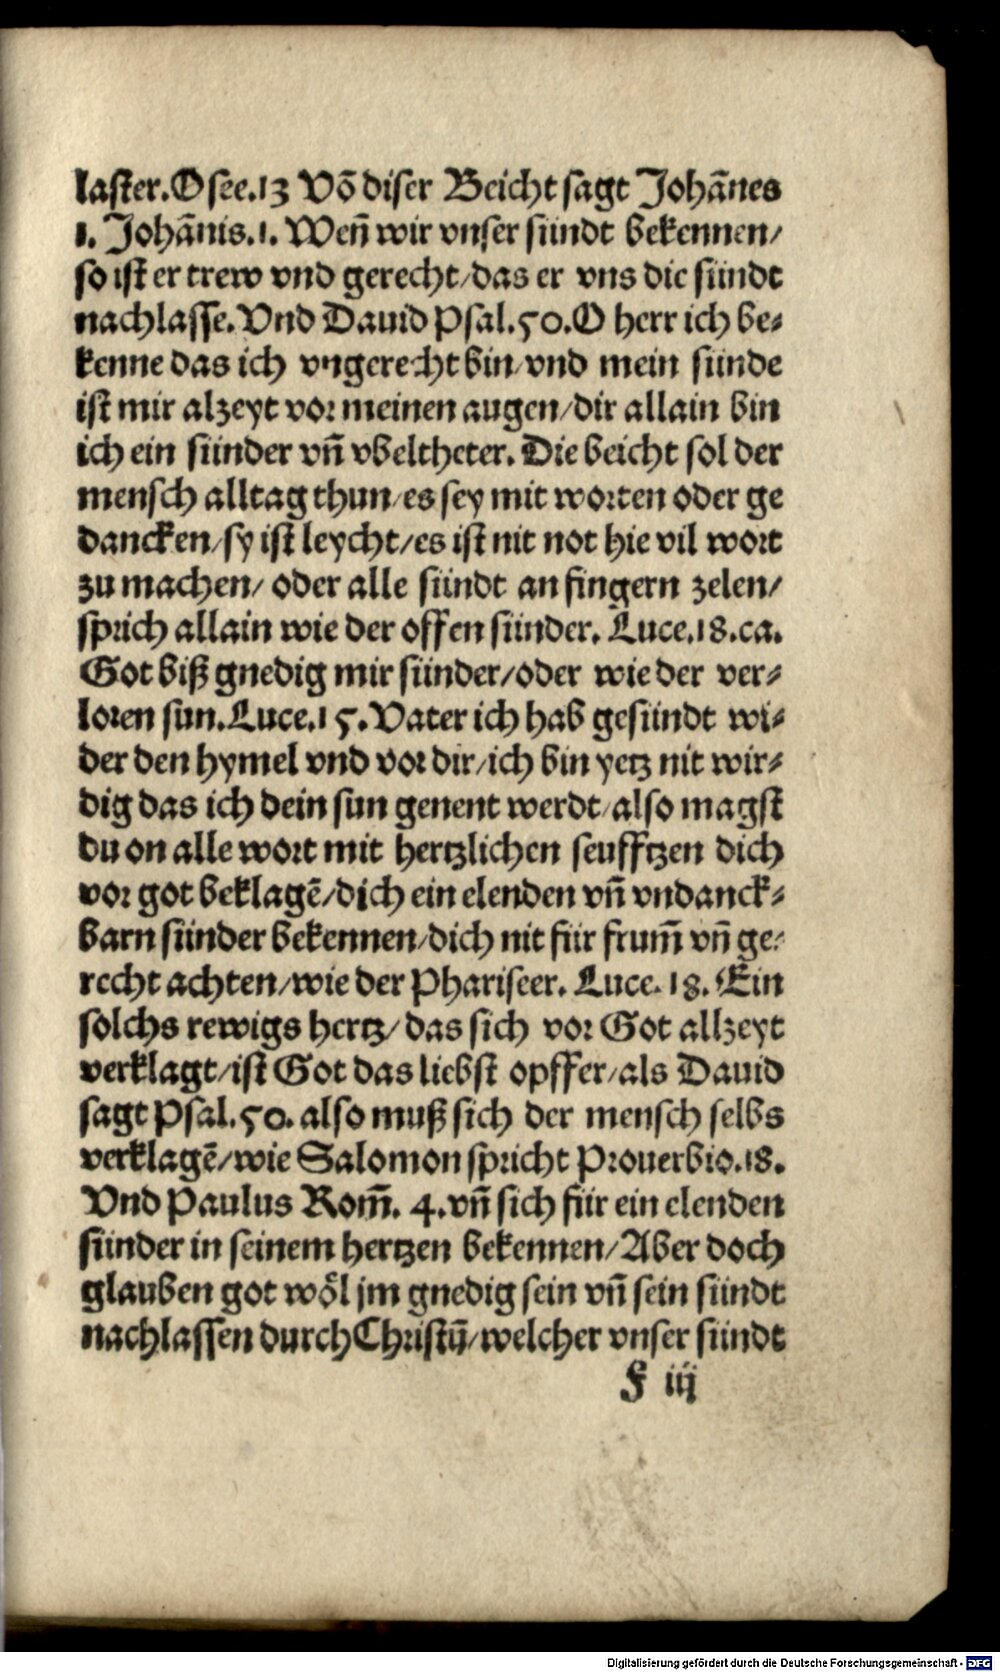 laster.Osee.13 Võ diser Beicht sagt Johãnes
1. Johãnis.1. Weñ wir vnser sündt bekennen/
so ist er trew vnd gerecht/das er vns die sündt
nachlasse. Vnd Dauid Psal.50.O herr ich be⸗
kenne das ich vngerecht bin/vnd mein sünde
ist mir alzeyt vor meinen augen/dir allain bin
ich ein sünder vñ vbeltheter. Die beicht sol der
mensch alltag thun/es sey mit worten oder ge
dancken/sy ist leycht/es ist nit not hie vil wort
zu machen/ oder alle sündt an fingern zelen/
sprich allain wie der offen sünder. Luce.18.ca.
Got biß gnedig mir sünder/oder wie der ver⸗
loren sun.Luce.15.Vater ich hab gesündt wi⸗
der den hymel vnd vor dir/ich bin yetz nit wir⸗
dig das ich dein sun genent werdt/also magst
du on alle wort mit hertzlichen seufftzen dich
vor got beklagẽ/dich ein elenden vñ vndanck⸗
barn sünder bekennen/dich nit für frum̃ vñ ge⸗
recht achten/wie der Phariseer. Luce. 18. Ein
solchs rewigs hertz/ das sich vor Got allzeyt
verklagt/ist Got das liebst opffer/als Dauid
sagt Psal.50. also muß sich der mensch selbs
verklagẽ/wie Salomon spricht Prouerbio.18.
Vnd Paulus Rom̃. 4.vñ sich für ein elenden
sünder in seinem hertzen bekennen/Aber doch
glauben got woͤl jm gnedig sein vñ sein sündt
nachlassen durch Christũ/welcher vnser sündt
F iij
Digitalisierung gefördert durch die Deutsche Forschungsgemeinschaft - DFG